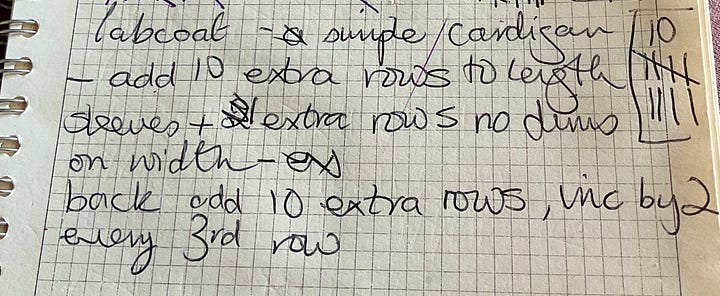 labcoat - a simple cardigan 10
- add 10 extra rows to length
sleeves + extra rows no dims
on width - ex
back add 10 extra rows, inc by 2
every 3rd row